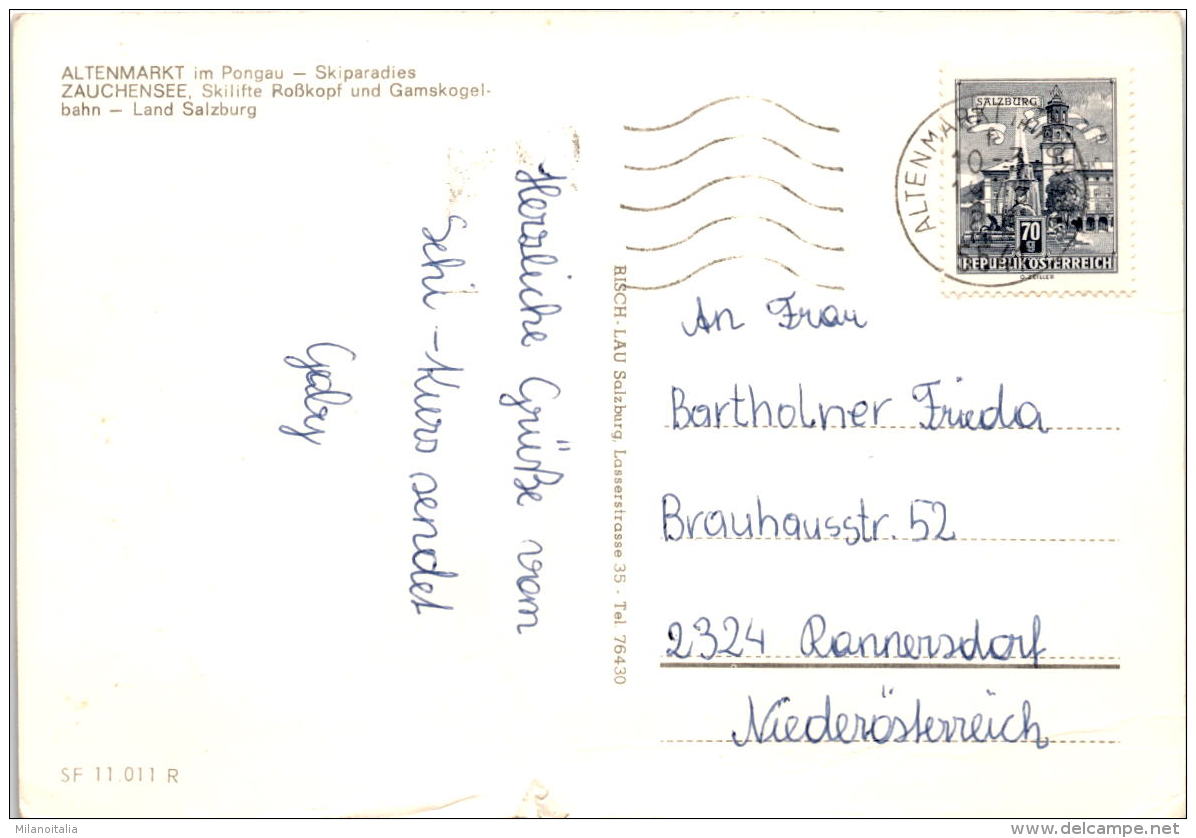 ALTENMARKT im Pongau — Skiparadies
ZAUCHENSEE, Skilifte Roßkopf und Gamskogel-
bahn — Land Salzburg
Herzliche Grüße vom
Schi-Kurs sendet
Gaby
RISCH-LAU Salzburg, Lasserstrasse 35 - Tel. 76430
SALZBURG
70
g
REPUBLIK ÖSTERREICH
ALTENMARKT
An Frau
Bartholner Frieda
Brauhausstr. 52
2324 Rannersdorf
Niederösterreich
SF 11.011 R
Milanoitalia
delcampe.net